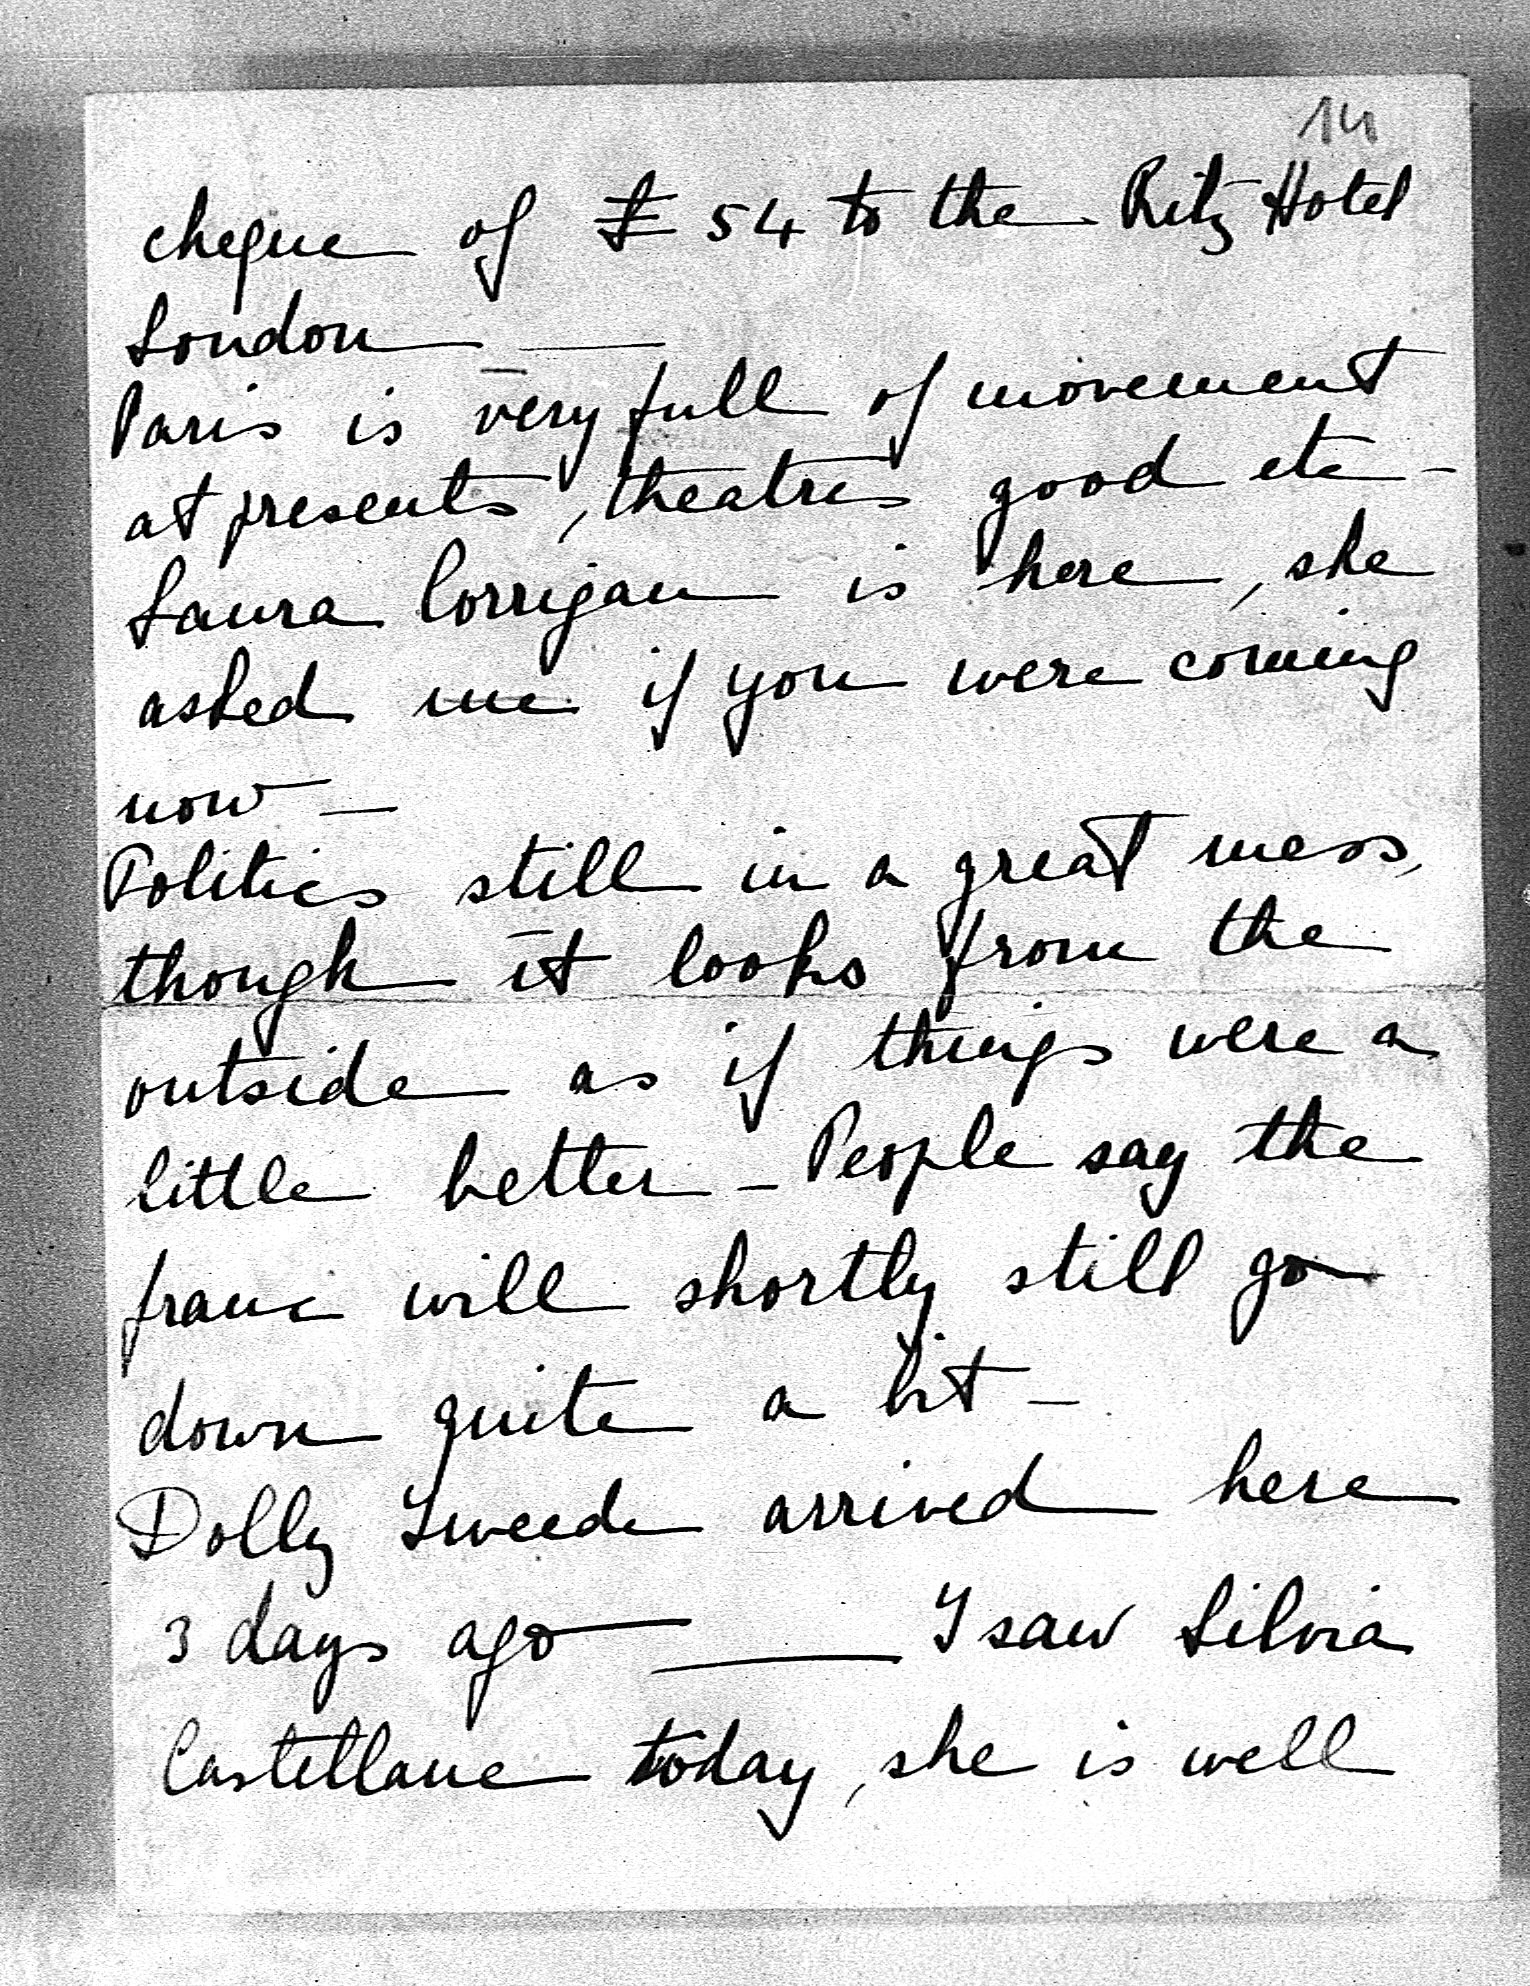 14
cheque of £ 54 to the Ritz Hotel
London —
Paris is very full of movement
at presents, theatres good etc -
Laura Corrigan is here, she
asked me if you were coming
now —
Politics still in a great mess,
though it looks from the
outside as if things were a
little better - People say the
franc will shortly still go
down quite a bit -
Dolly Tweede arrived here
3 days ago — I saw Silvia
Castellane today, she is well